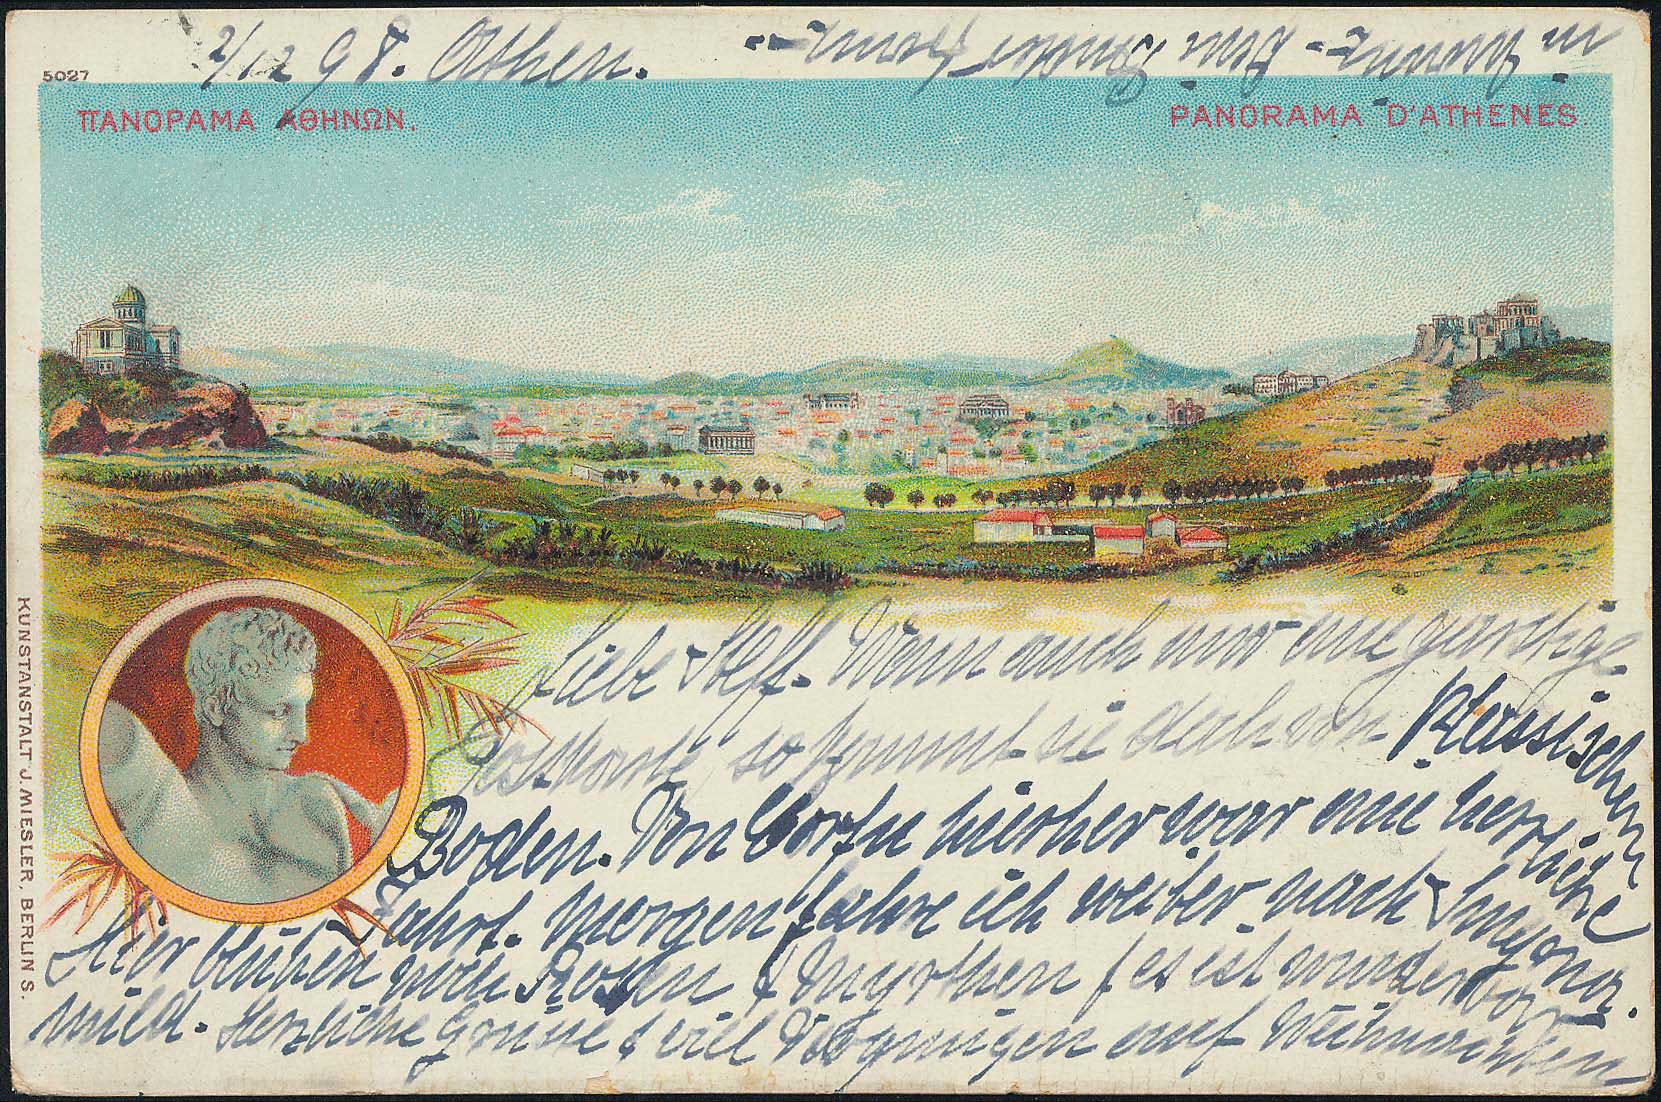 2/12 98. Athen.
5027
ΠΑΝΟΡΑΜΑ ΑΘΗΝΩΝ.
PANORAMA D'ATHENES.
Liebe Steff. Wenn auch nur eine garstige
Postkarte so kommt sie doch von klassischem
Boden. Von Corfu hierher war eine herrliche
Fahrt. Morgen fahre ich weiter nach Smyrna.
Hier blühen noch Rosen & Myrthen & es ist wunderbar
mild. Herzliche Grüsse & viel Vergnügen auf Weihnachten
in
KUNSTANSTALT J. MIESLER, BERLIN S.